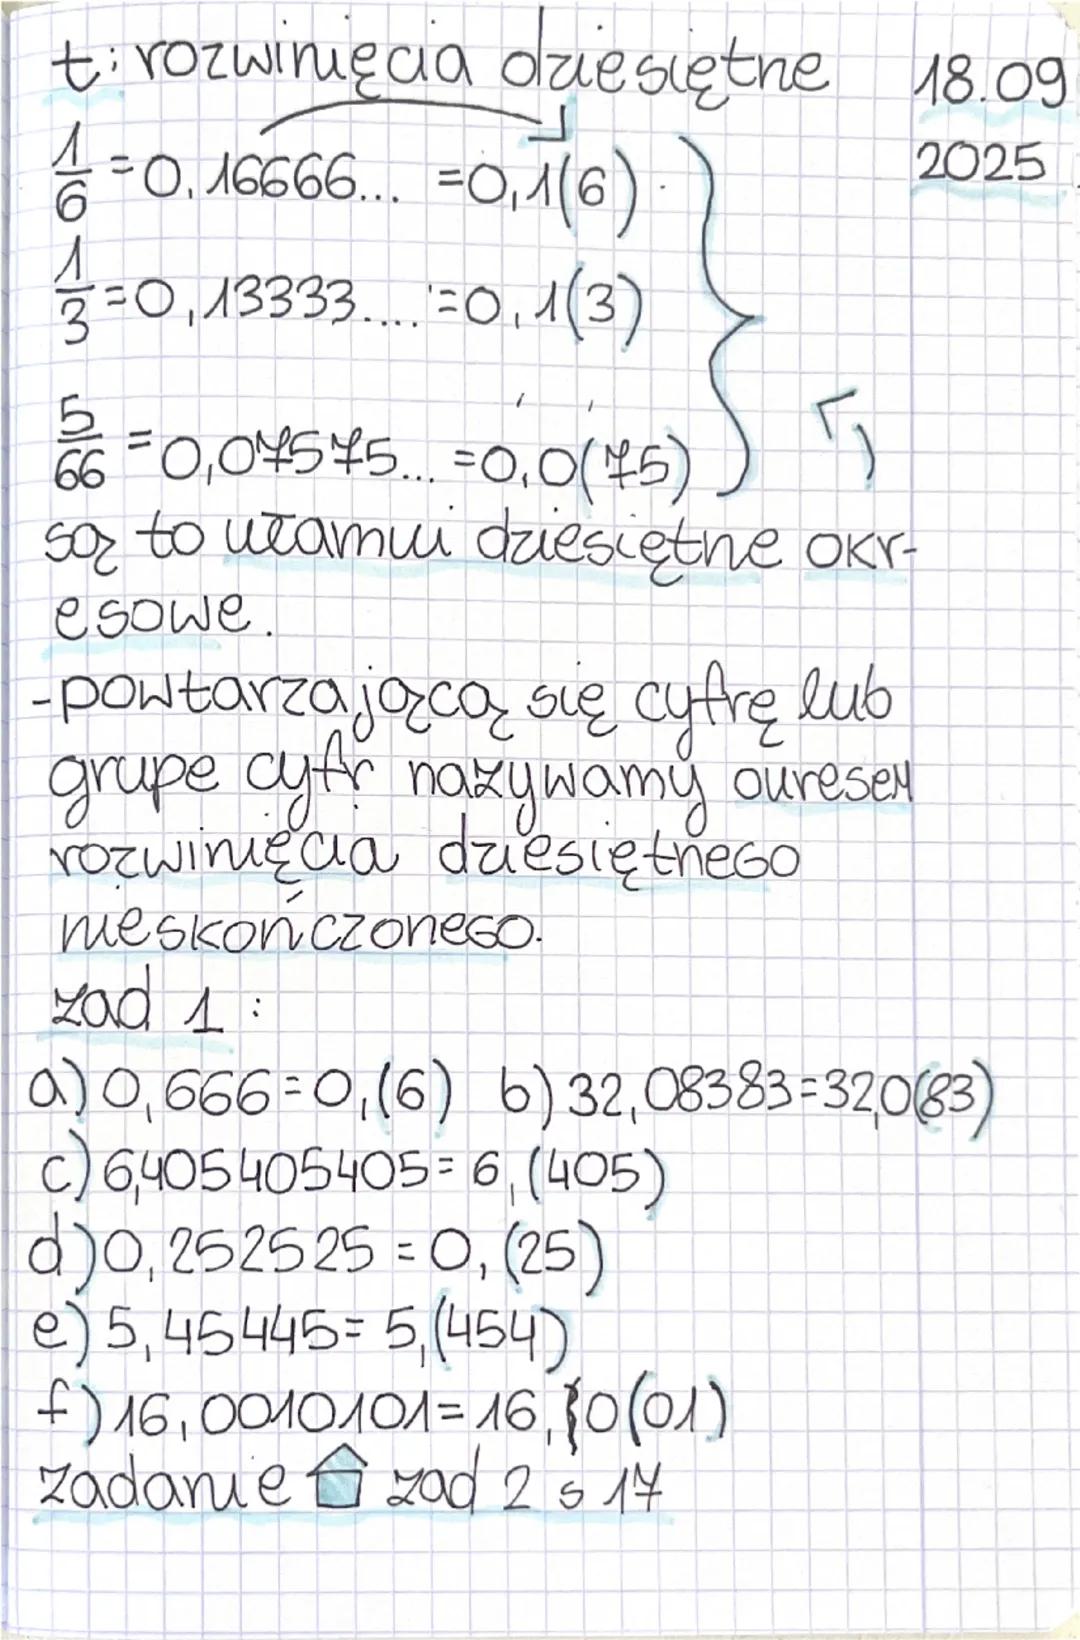 t: rozwinięcia dziesiętne 18.09
2025
1/6 = 0,16666... = 0,1(6)
1/3 = 0,13333.... = 0,1(3)
5/66 = 0,07575... = 0,0(75)
są to ułamki dziesiętne okr-
esowe.
-powtarzającą się cyfrę lub
grupe cyfr nazywamy okresem
rozwinięcia dziesiętnego
nieskończonego.
zad 1:
a) 0,666 = 0,(6) b) 32,08383 = 32,0(83)
c) 6,405405405 = 6,(405)
d) 0,252525 = 0,(25)
e) 5,45445 = 5,(454)
f) 16,0010101 = 16,0(01)
zadanie zad 2 s 17